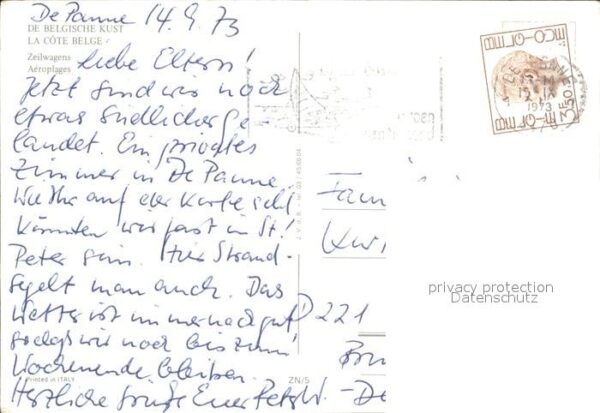 De Panne 14.9.73
DE BELGISCHE KUST
LA CÔTE BELGE
Zeilwagens
Aéroplages
Liebe Eltern!
Jetzt sind wir noch
etwas südlicher ge-
landet. Ein privates
Zimmer in De Panne.
Wie Ihr auf der Karte seht
könnten wir fast in St.!
Peter sein. Hier Strand-
segelt man auch. Das
Wetter ist immer noch gut
sodaß wir noch bis zum
Wochenende bleiben.
Herzliche Grüße Euer
Printed in ITALY
ZN/5
BELGIE-BELGIQUE
3F50
DE PANNE
1973
Fam
D 221
privacy protection
Datenschutz